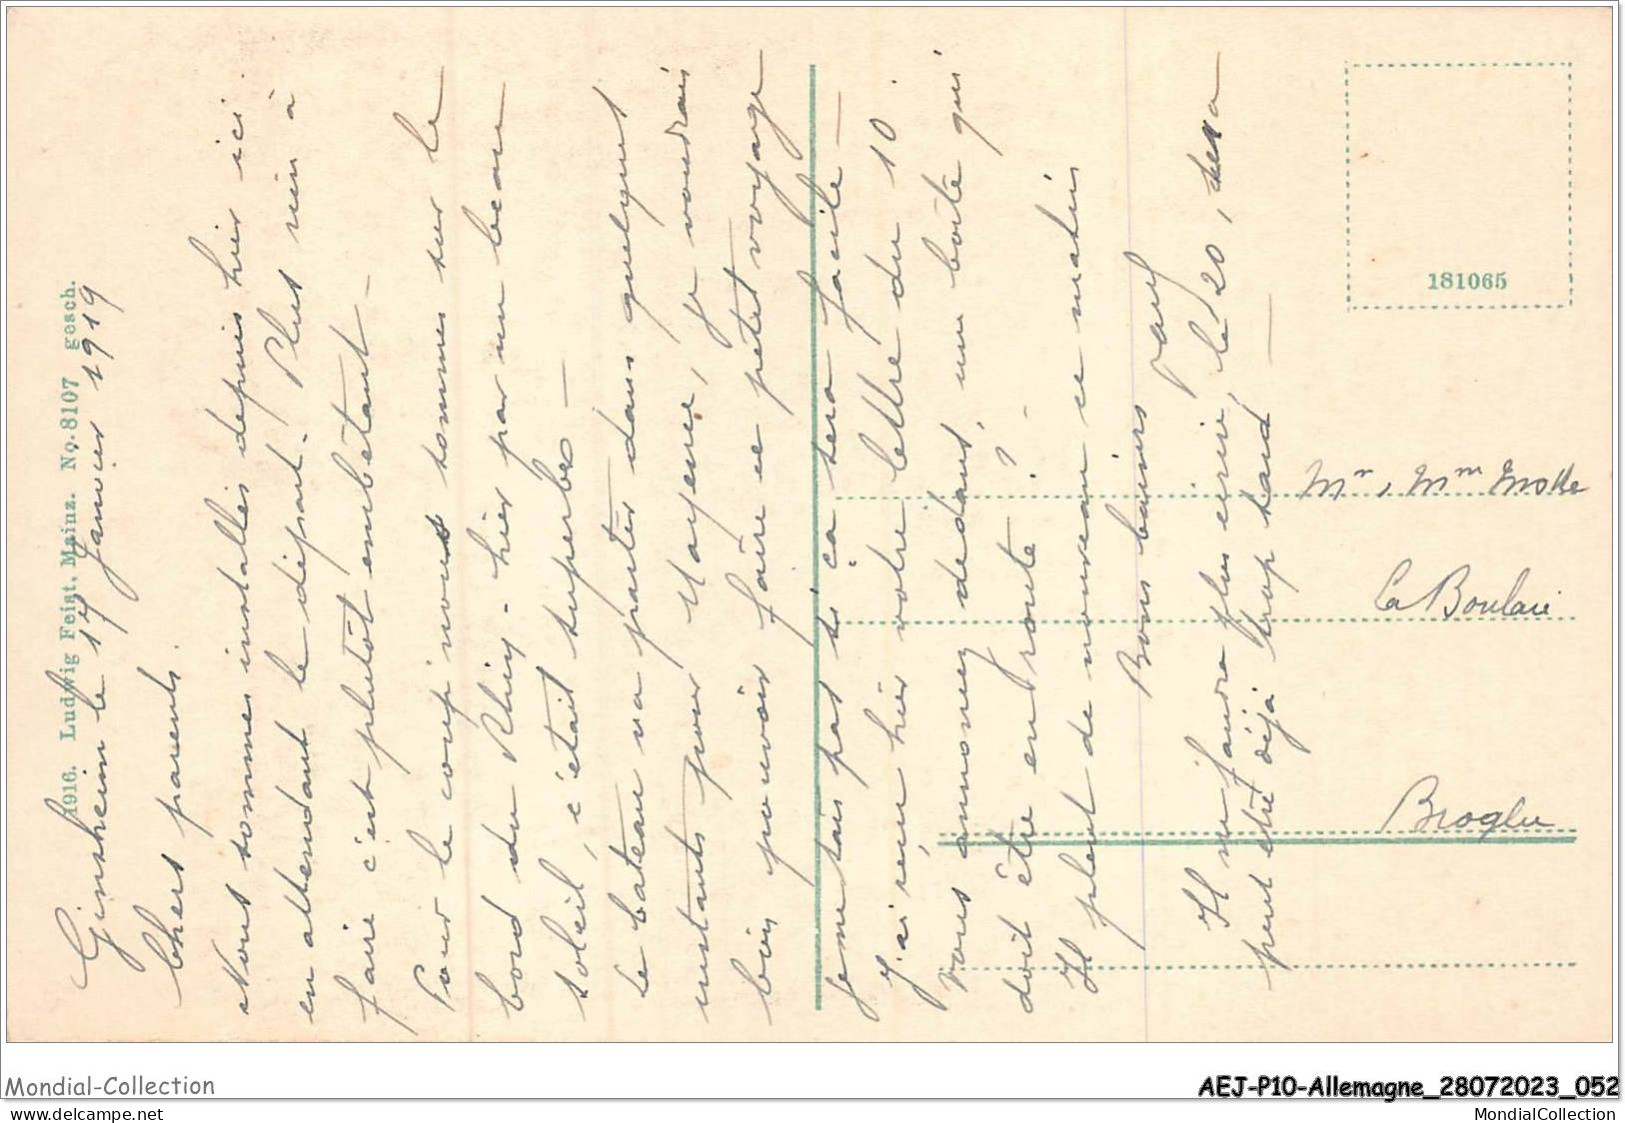 1916. Ludwig Feist, Mainz. No. 8107 gesch.
Ginsheim le 17 Janvier 1919
Chers parents.
Nous sommes installés depuis hier ici
en attendant le départ. Plus rien à
faire c'est plutôt embêtant —
Pour le coup nous sommes sur le
bord du Rhin - hier par un beau
soleil, c'était superbe —
Le bateau va partir dans quelques
instants pour Mayence, je voudrais
bien pouvoir faire ce petit voyage
je ne sais pas si ça sera facile —
J'ai reçu hier votre lettre du 10.
vous annoncez dedans, une boîte qui
doit être en route ? -
Il pleut de nouveau ce matin
Bons baisers
Paul
Il ne faudra plus écrire, le 20, sera
peut être déjà trop tard —
181065
Mr, Mme Motte
La Boulaie
Broglie
Mondial-Collection
AEJ-P10-Allemagne_28072023_052
www.delcampe.net
MondialCollection